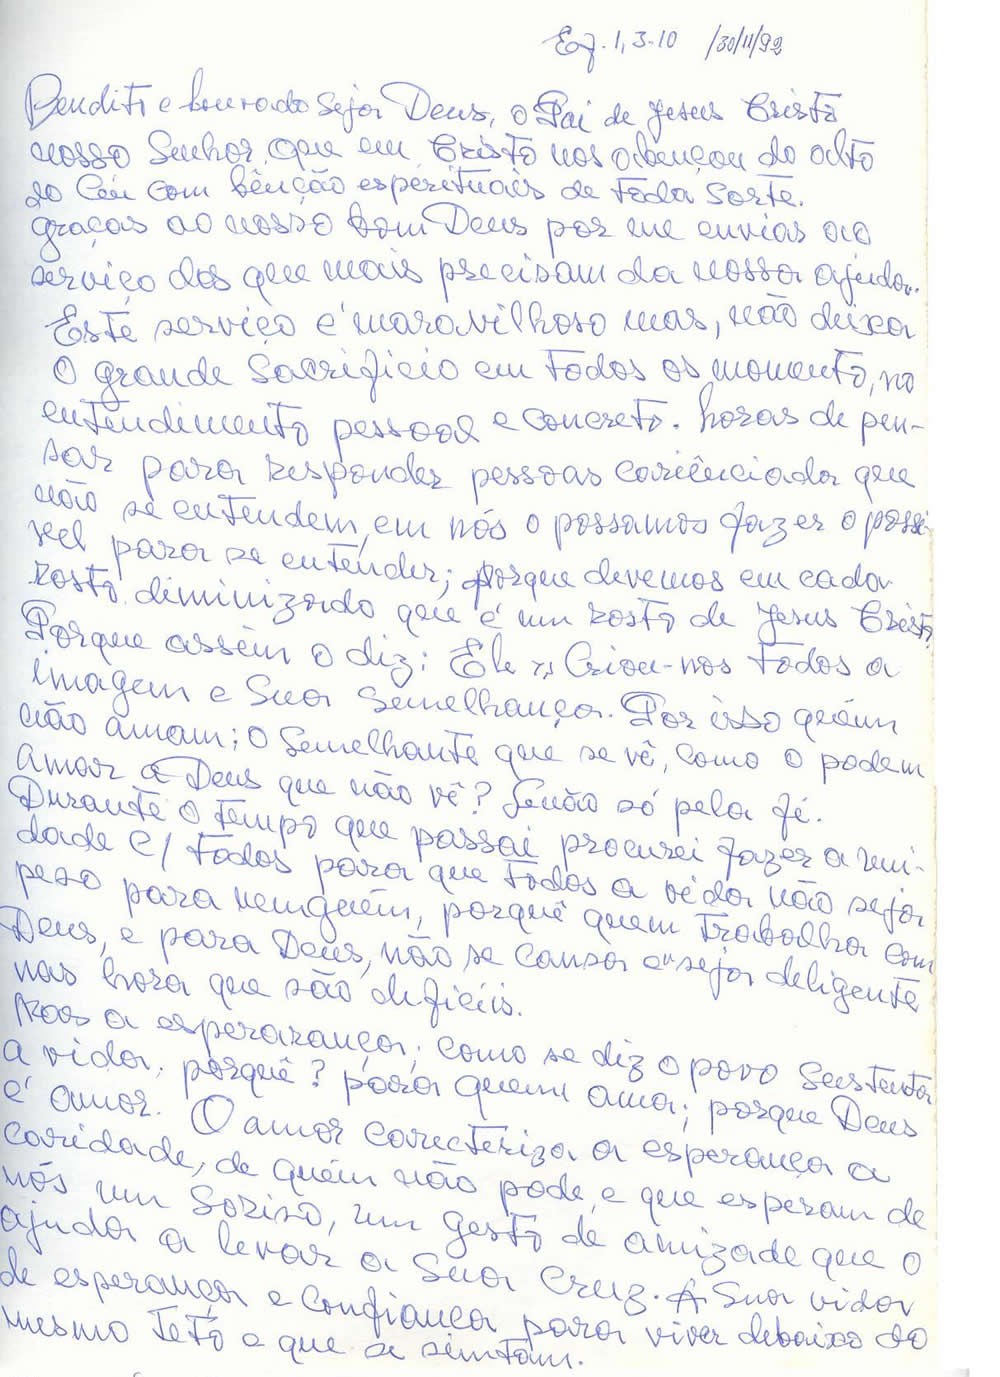 Ef. 1, 3-10 /30/11/92
Bendito e louvado seja Deus, o Pai de Jesus Cristo
nosso Senhor, que em Cristo nos abençou do alto
do Céu com bênção esperituais de toda sorte.
graças ao nosso bom Deus por me envias ao
serviço dos que mais precisam da nossa ajuda.
Este serviço é maravilhoso mas, não deixa
O grande Sacrificio em todos os momento, no
entendimento pessoal e concreto. horas de pen-
sar para responder pessoas cariênciada que
não se entendem, em nós o possamos fazer o possi-
vel para se entender; porque devemos em cada
rosto diminizado que é um rosto de Jesus Cristo,
Porque assim o diz: Ele Criou-nos todos a
imagem e Sua Semelhança. Por isso quém
não amam; o Semelhante que se vê, como o podem
amar a Deus que não vê? Senão só pela fé.
Durante o tempo que passai procurei fazer a uni-
dade c/ todos para que todos a vida não seja
peso para neinguém, porquê quem Trabalha com
Deus, e para Deus, não se cansa e seja deligente
nas hora que são dificiis.
Mas a esperarança; como se diz o povo Sustenta
a vida, porquê? para quem ama; porque Deus
é amor. O amor carecteriza a esperança a
caridade, de quém não pode, e que esperam de
nós um Soriso, um gesto de amizade que o
ajuda a levar a Sua Cruz. A Sua vida
de esperança e Confiança para viver debaixo do
mesmo Tetó e que se sintam.